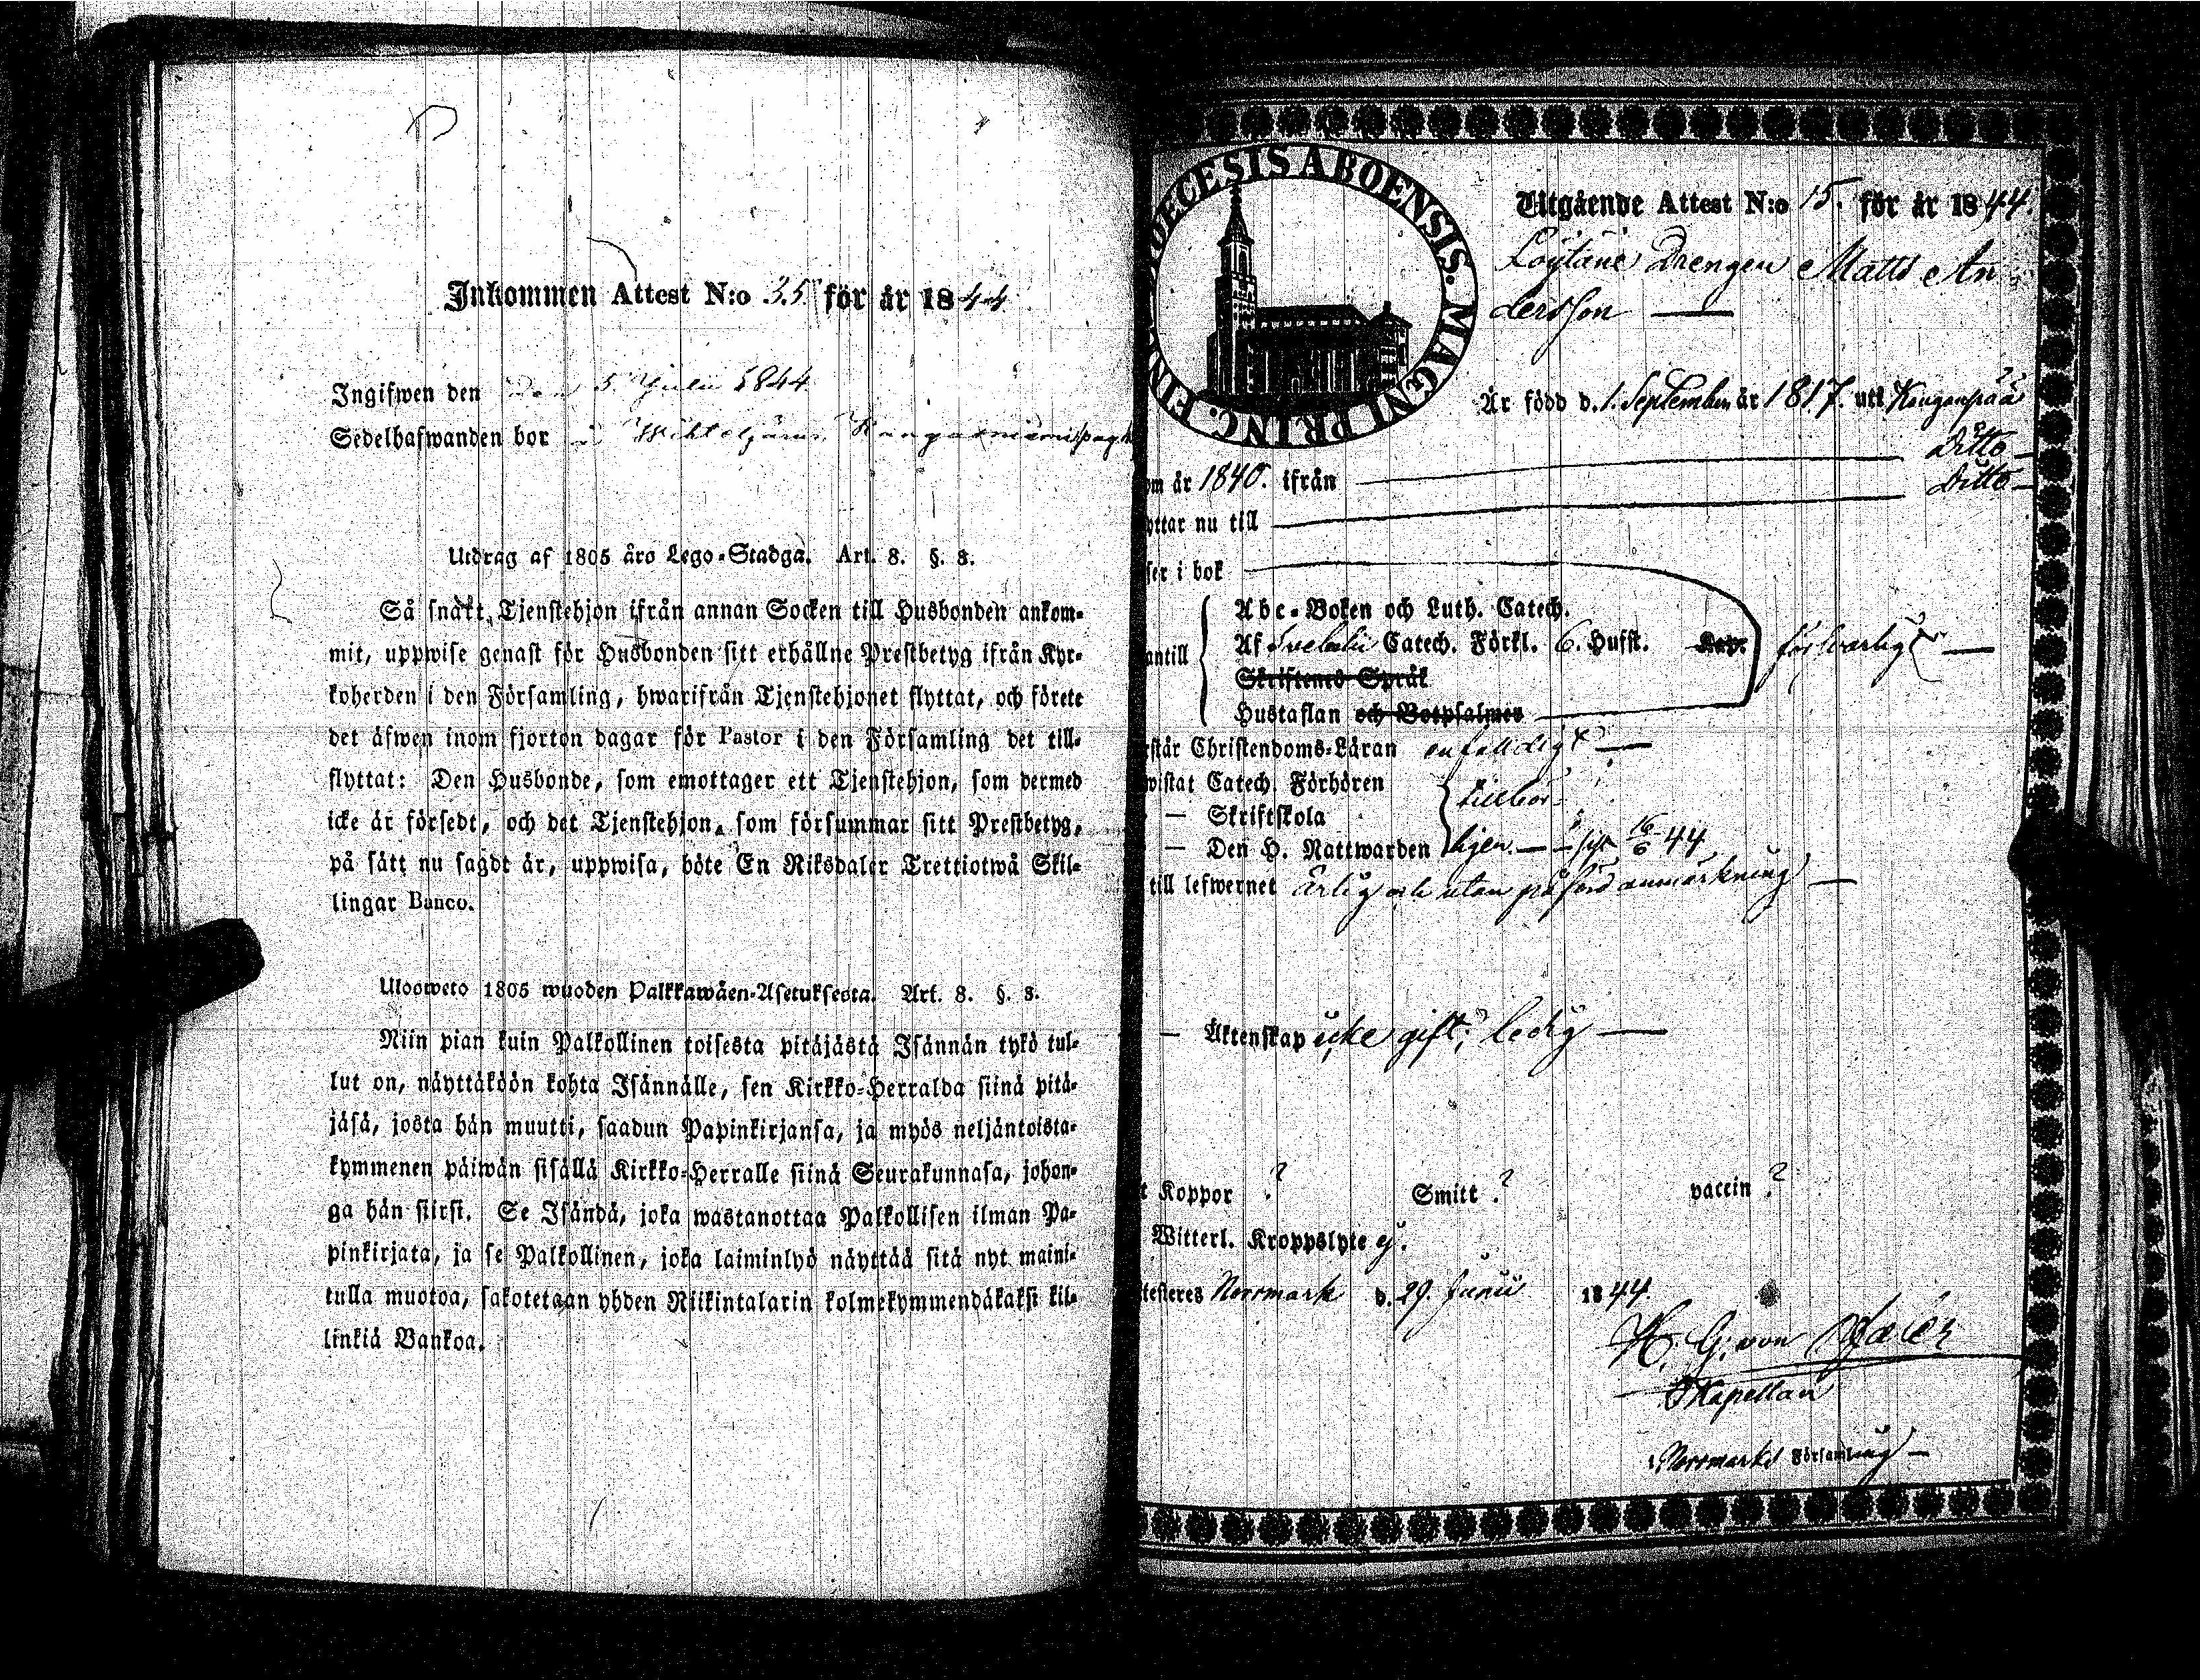 Inkommen Attest N:o 35 för år 1844
Ingifwen den 5 Julii 1844
Sedelhafwanden bor i
Utdrag af 1805 års Lego-Stadga. Art. 8. §. 3.
Så snart Tjenstehjon ifrån annan Socken till Husbonden ankom-
mit, uppwise genast för Husbonden sitt erhållne Prestbetyg ifrån Kyr-
koherden i den Församling, hwarifrån Tjenstehjonet flyttat, och förete
det äfwen inom fjorton dagar för Pastor i den Församling det till-
flyttat: Den Husbonde, som emottager ett Tjenstehjon, som dermed
icke är försedt, och det Tjenstehjon, som försummar sitt Prestbetyg,
på sätt nu sagdt är, uppwisa, böte En Riksdaler Trettiotwå Skil-
lingar Banco.
Ulosweto 1805 wuoden Palkkawäen-Asetuksesta. Art. 8. §. 3.
Niin pian kuin Palkollinen toisesta pitäjästä Isännän tykö tul-
lut on, näyttäköön kohta Isännälle, sen Kirkko-Herralda siinä pitä-
jäsä, josta hän muutti, saadun Papinkirjansa, ja myös neljäntoista-
kymmenen päiwän sisällä Kirkko-Herralle siinä Seurakunnasa, johon-
ga hän siirsi. Se Isändä, joka wastanottaa Palkollisen ilman Pa-
pinkirjata, ja se Palkollinen, joka laiminlyö näyttää sitä nyt maini-
tulla muotoa, sakotetaan yhden Riikintalarin kolmekymmendäkaksi kil-
linkiä Bankoa.
DIOECESIS ABOENSIS. MAGNI PRINC. FIN
Utgående Attest N:o 15. för år 1844.
Löytäne Drengen Matts An
dersson
Är född d. 1. September år 1817. uti Kongonpää
om år 1840. ifrån Ditto
yttar nu till Ditto
ser i bok
Abc-Boken och Luth. Catech.
antill Af Svebelii Catech. Förkl. 6. Hufst. Kap. försvarligt
Skriftenes Språk
Hustaflan och Botpsalmer
rstår Christendoms-Läran enfaldigt
wistat Catech. Förhören
— Skriftskola tillbör-
— Den H. Nattwarden ligen. — sist 16/6 44
till lefwernet Ärlig och utan påförd anmärkning
— Äktenskap icke gift; ledig
t Koppor ? Smitt ? vaccin ?
Witterl. Kroppslyte ej.
testeres Norrmark d. 29. Junii 1844.
H. G. von
Kapellan
i Norrmarks Församling